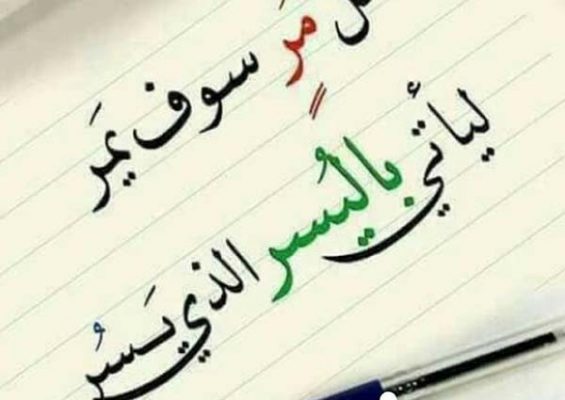 مَرٍ سوف يمَر
ليأتي باليُسر الذي يَسُر